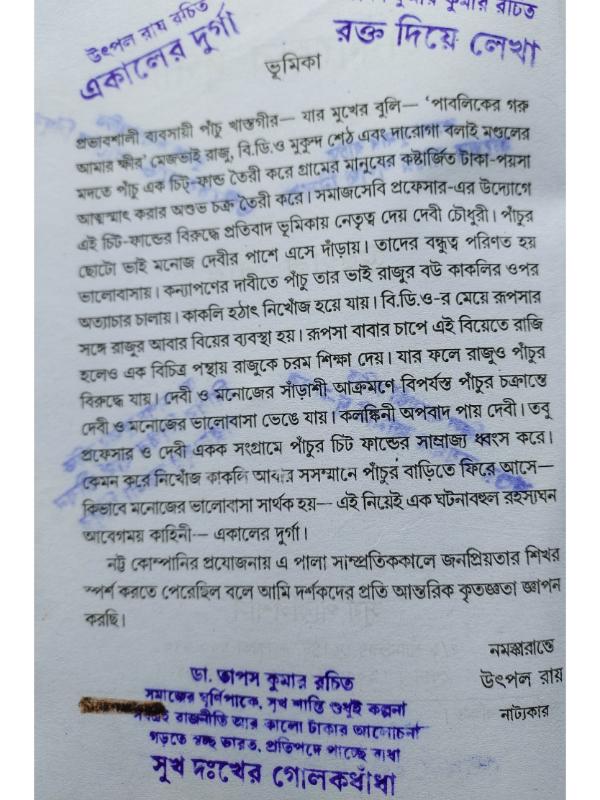 কুমার রচিত
রক্ত দিয়ে লেখা
উৎপল রায় রচিত
একালের দুর্গা
ভূমিকা
প্রভাবশালী ব্যবসায়ী পাঁচু খাস্তগীর— যার মুখের বুলি— 'পাবলিকের গরু
আমার ক্ষীর' মেজভাই রাজু, বি.ডি.ও মুকুন্দ শেঠ এবং দারোগা বলাই মণ্ডলের
মদতে পাঁচু এক চিট-ফান্ড তৈরী করে গ্রামের মানুষের কষ্টার্জিত টাকা-পয়সা
আত্মসাৎ করার অশুভ চক্র তৈরী করে। সমাজসেবি প্রফেসার-এর উদ্যোগে
এই চিট-ফান্ডের বিরুদ্ধে প্রতিবাদ ভূমিকায় নেতৃত্ব দেয় দেবী চৌধুরী। পাঁচুর
ছোটো ভাই মনোজ দেবীর পাশে এসে দাঁড়ায়। তাদের বন্ধুত্ব পরিণত হয়
ভালোবাসায়। কন্যাপণের দাবীতে পাঁচু তার ভাই রাজুর বউ কাকলির ওপর
অত্যাচার চালায়। কাকলি হঠাৎ নিখোঁজ হয়ে যায়। বি.ডি.ও-র মেয়ে রূপসার
সঙ্গে রাজুর আবার বিয়ের ব্যবস্থা হয়। রূপসা বাবার চাপে এই বিয়েতে রাজি
হলেও এক বিচিত্র পন্থায় রাজুকে চরম শিক্ষা দেয়। যার ফলে রাজুও পাঁচুর
বিরুদ্ধে যায়। দেবী ও মনোজের সাঁড়াশী আক্রমণে বিপর্যস্ত পাঁচুর চক্রান্তে
দেবী ও মনোজের ভালোবাসা ভেঙে যায়। কলঙ্কিনী অপবাদ পায় দেবী। তবু
প্রফেসার ও দেবী একক সংগ্রামে পাঁচুর চিট ফান্ডের সাম্রাজ্য ধ্বংস করে।
কেমন করে নিখোঁজ কাকলি আবার সসম্মানে পাঁচুর বাড়িতে ফিরে আসে—
কিভাবে মনোজের ভালোবাসা সার্থক হয়— এই নিয়েই এক ঘটনাবহুল রহস্যঘন
আবেগময় কাহিনী— একালের দুর্গা।
নট্ট কোম্পানির প্রযোজনায় এ পালা সাম্প্রতিককালে জনপ্রিয়তার শিখর
স্পর্শ করতে পেরেছিল বলে আমি দর্শকদের প্রতি আন্তরিক কৃতজ্ঞতা জ্ঞাপন
করছি।
নমস্কারান্তে
উৎপল রায়
নাট্যকার
ডা. তাপস কুমার রচিত
সমাজের ঘূর্ণিপাকে, সুখ শান্তি শুধুই কল্পনা
রাজনীতি আর কালো টাকার আলোচনা
গড়তে স্বচ্ছ ভারত, প্রতিপদে পাচ্ছে বাধা
সুখ দুঃখের গোলকধাঁধা